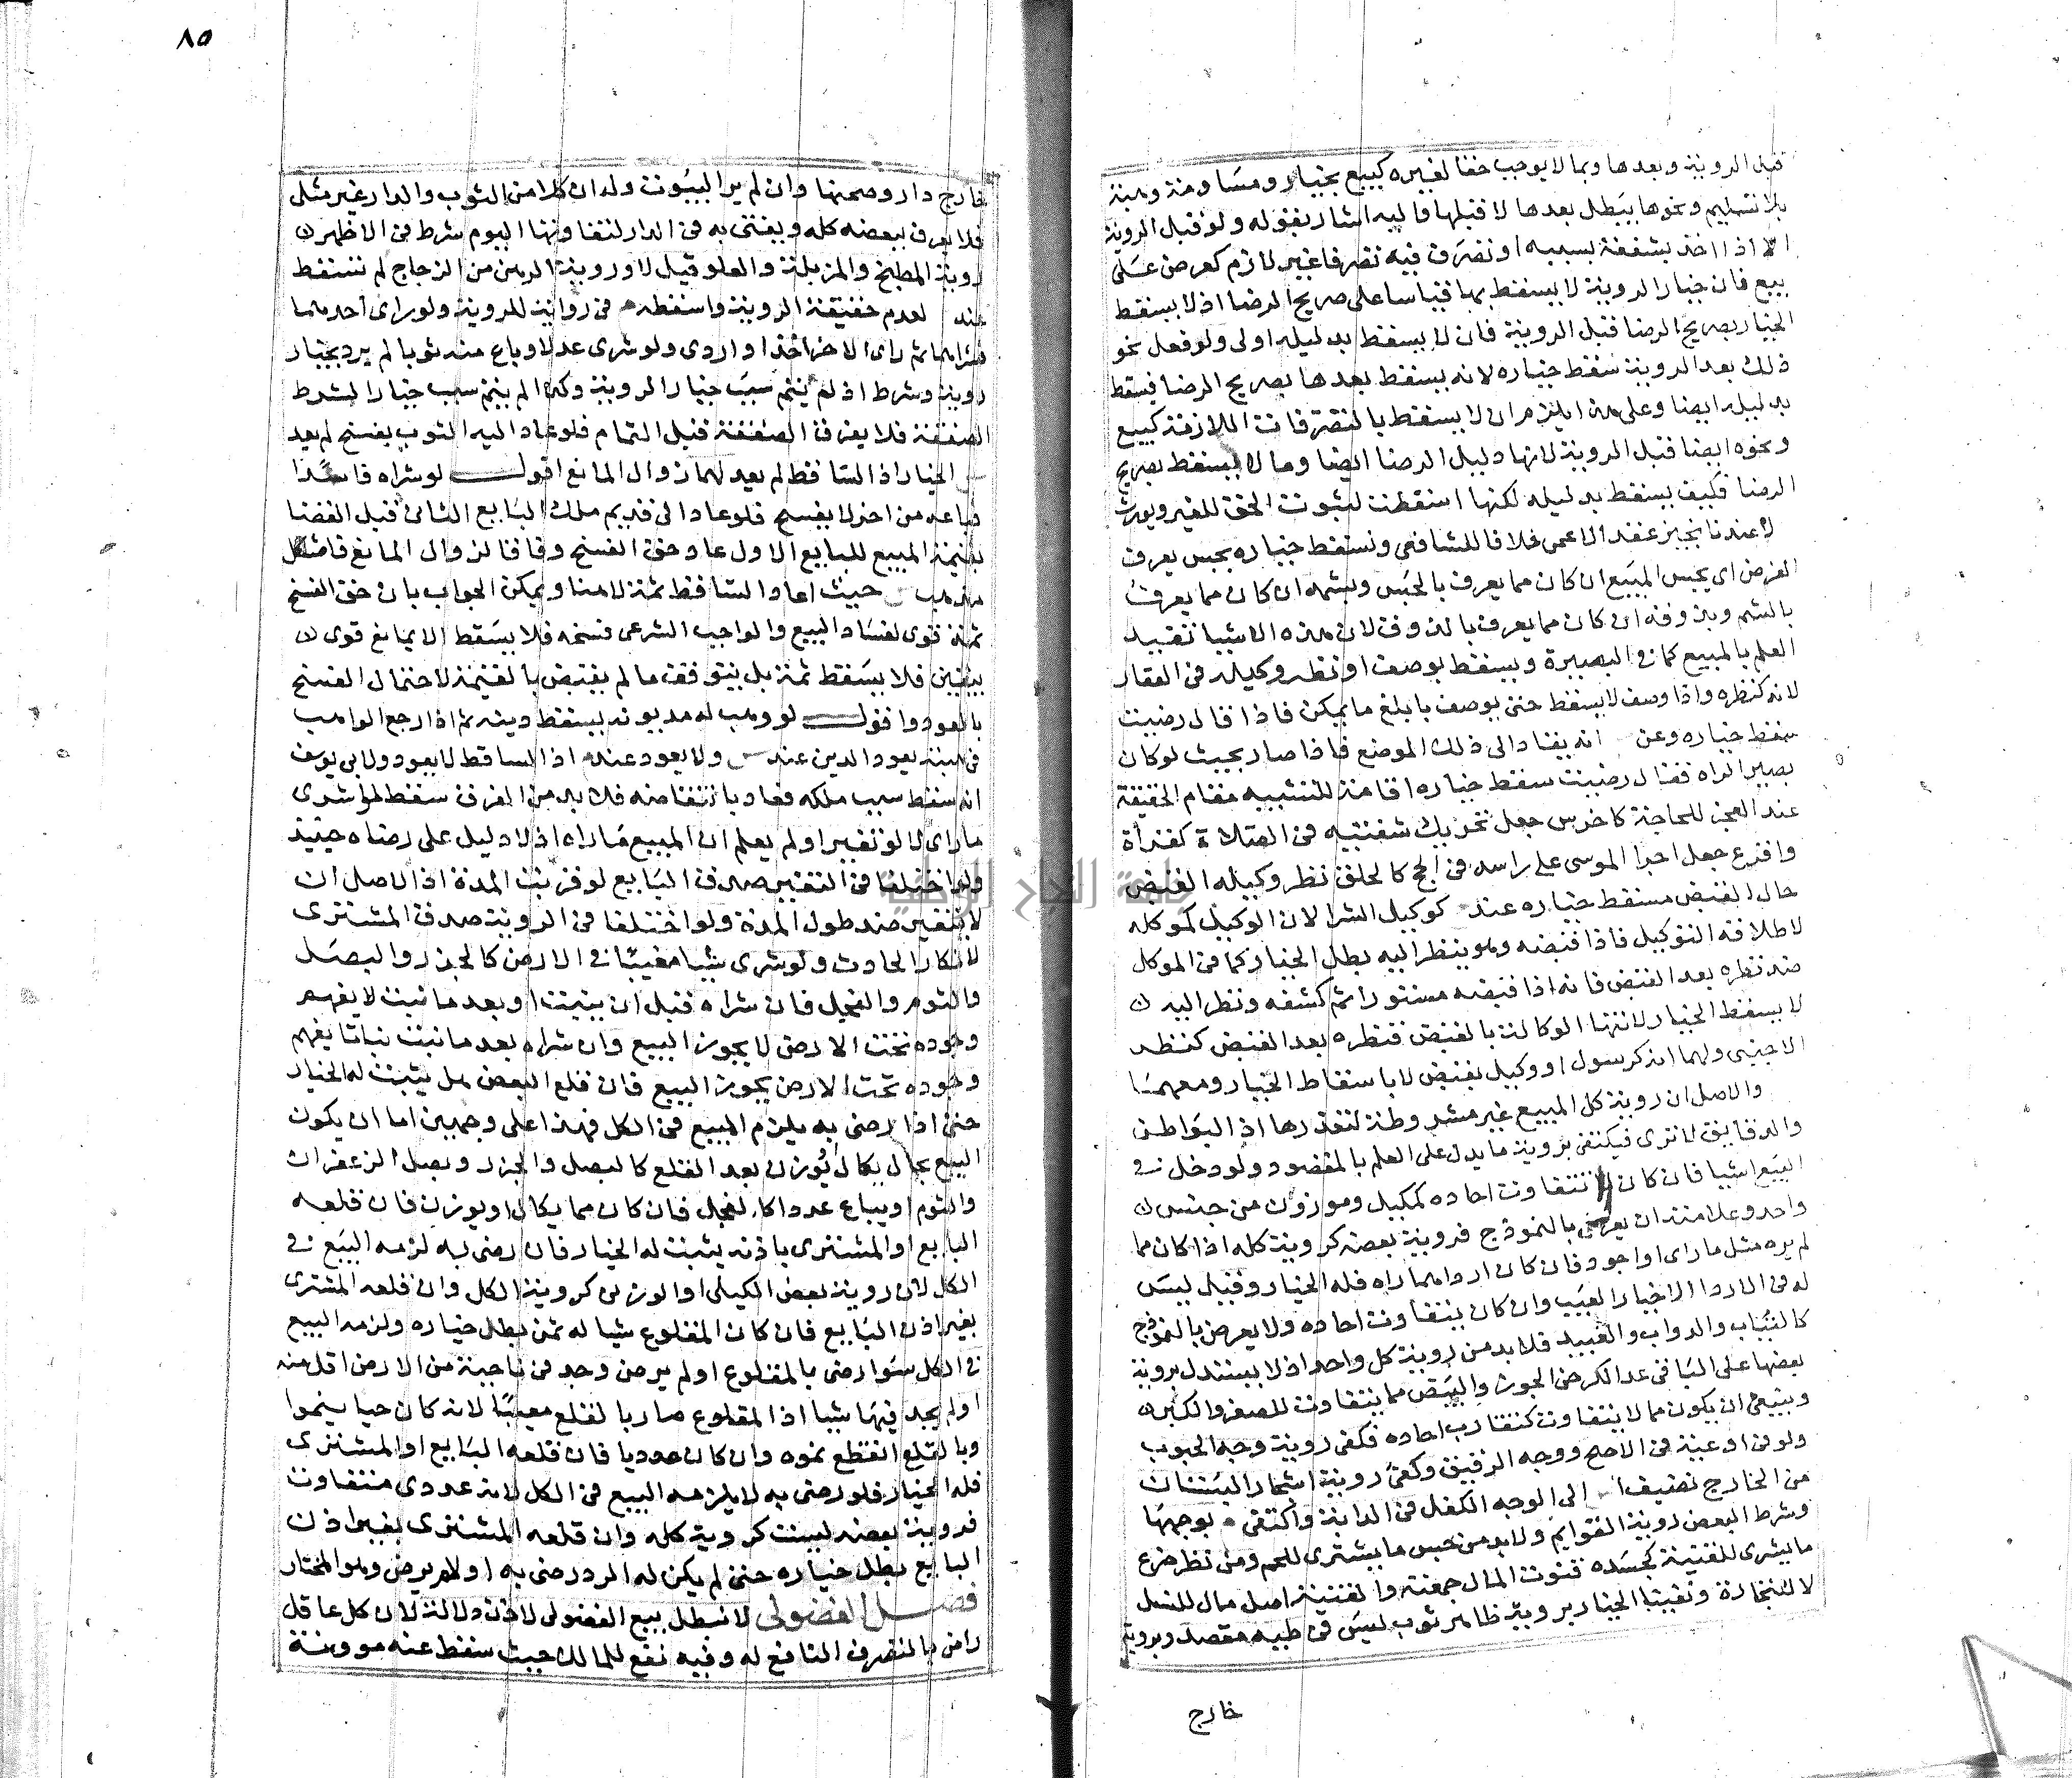 قبل الروية وبعدها وبما لا يوجب حقا لغيره كبيع بخيار ومساومة وهبة
بلا تسليم ونحوها يبطل بعدها لا قبلها فاليه اشار بقوله ولو قبل الروية
الا اذا اخذ بشفعة بسببه او تصرف فيه تصرفا غير لازم كعرض على
بيع فان خيار الروية لا يسقط بها قياسا على صريح الرضا اذ لا يسقط
الخيار بصريح الرضا قبل الروية فان لا يسقط بدليله اولى ولو فعل نحو
ذلك بعد الروية سقط خياره لانه يسقط بعدها بصريح الرضا فيسقط
بدليله ايضا وعلى هذا يلزم ان لا يسقط بالتصرفات اللازمة كبيع
ونحوه ايضا قبل الروية لانها دليل الرضا ايضا وما لا يسقط بصريح
الرضا فكيف يسقط بدليله لكنها اسقطت لثبوت الحق للغير ويورث
لا عندنا نجيز عقد الاعمى خلافا للشافعي ونسقط خياره بجس يعرف
الغرض اي بجس المبيع ان كان مما يعرف بالجس وبشمه ان كان مما يعرف
بالشم وبذوقه ان كان مما يعرف بالذوق لان هذه الاشيا تفيد
العلم بالمبيع كما في البصيرة ويسقط بوصف او نظر وكيله في العقار
لانه كنظره واذا وصف لا يسقط حتى يوصف بابلغ ما يمكن فاذا قال رضيت
سقط خياره وعن انه يقاد الى ذلك الموضع فاذا صار بحيث لو كان
بصيرا لراه فقال رضيت سقط خياره اقامة للتشبيه مقام الحقيقة
عند العجز للحاجة كاخرس جعل تحريك شفتيه في الصلاة كقراة
واقرع جعل اجرا الموسى على راسه في الحج كالحلق نظر وكيله القبض
حال القبض مسقط خياره عند كوكيل الشرا لان الوكيل كموكله
لاطلاقه التوكيل فاذا قبضه وهو ينظر اليه بطل الخيار كما في الموكل
ضد نظره بعد القبض فانه اذا قبضه مستورا ثم كشفه ونظر اليه
لا يسقط الخيار لانتها الوكالة بالقبض فنظره بعد القبض كنظر
الاجنبي ولهما انه كرسول او وكيل بقبض لا باسقاط الخيار ومعهما
والاصل ان روية كل المبيع غير مشروطة لتعذرها اذ البواطن
والدقايق لا ترى فيكتفى بروية ما يدل على العلم بالمقصود ولو دخل في
البيع اشيا فان كان لا تتفاوت احاده كمكيل وموزون من جنس
واحد وعلامته ان يعرض بالنموذج فروية بعضه كروية كله اذا كان مما
لم يره مثل ما راى او اجود فان كان اردا مما راه فله الخيار وقيل ليس
له في الاردا الا خيار العيب وان كان يتفاوت احاده ولا يعرض بالنموذج
كالثياب والدواب والعبيد فلا بد من روية كل واحد اذ لا يستدل بروية
بعضها على الباقي عد الكرخي الجوز والبيض مما يتفاوت للصغر والكبر
وينبغي ان يكون مما لا يتفاوت كتقارب احاده فكفى روية وجه الحبوب
ولو في اوعية في الاصح ووجه الرقيق وكفى روية اشجار البستان
من الخارج نضيف الى الوجه الكفل في الدابة واكتفى بوجهها
وشرط البعض روية القوايم ولا بد من جس ما يشترى للحم ومن نظر ضرع
ما يشرى للقنية كجسده قنوت المال جمعته والقنية اصل مال للنسل
لا للتجارة ونفينا الخيار بروية ظاهر ثوب ليس في طيه مقصد وبروية
خارج
٨٥
خارج دار وصحنها وان لم ير البيوت وله ان كلا من الثوب والدار غير مثلي
فلا يعرف ببعضه كله ويفتى به في الدار لتفاوتها اليوم شرط في الاظهر
روية المطبخ والمزبلة والعلو قيل لا وروية الدهن من الزجاج لم تسقط
عند لعدم حقيقة الروية واسقطه في رواية للروية ولو راى احدهما
فشراهما ثم راى الاخر اخذا او اردى ولو شرى عدلا وباع منه ثوبا لم يرد بخيار
روية وشرط اذ لم يتم سبب خيار الروية وكذا لم يتم سبب خيار الشرط
الصفقة فلا يفرق الصفقة قبل التمام فلو عاد اليه الثوب بفسخ لم يعد
الخيار اذ الساقط لم يعد لهما زوال المانع اقول لو شراه فاسدا
فباعه من اخر لا بفسخ فلو عاد الى قديم ملك البايع الثاني قبل القضا
بقيمة المبيع للبايع الاول عاد حق الفسخ وفاقا لزوال المانع فاشكل
مذهب حيث اعاد الساقط ثمة لا هنا ويمكن الجواب بان حق الفسخ
ثمة قوى لفساد البيع والواجب الشرعي فسخه فلا يسقط الا بمانع قوى
بيقين فلا يسقط ثمة بل يتوقف ما لم يقبض بالقيمة لاحتمال الفسخ
بالعود واقول لو وهب له مديونه يسقط دينه ثم اذا رجع الواهب
في هبته يعود الدين عند ولا يعود عند اذ الساقط لا يعود ولابي يوسف
انه سقط سبب ملكه فعاد بانتقاضه فلا بد من الفرق سقط لو شرى
ما راى لا لو تغير او لم يعلم ان المبيع ما راه اذ لا دليل على رضاه حينيذ
ولو اختلفا في التغير صدق البايع لو قربت المدة اذ الاصل ان
لا يتغير ضد طول المدة ولو اختلفا في الروية صدق المشترى
لانكار الحادث ولو شرى شيا مغيبا في الارض كالجزر والبصل
والثوم والفجل فان شراه قبل ان ينبت او بعد ما نبت لا يفهم
وجوده تحت الارض لا يجوز البيع وان شراه بعد ما نبت نباتا يفهم
وجوده تحت الارض يجوز البيع فان قلع البعض هل يثبت له الخيار
حتى اذا رضى به يلزم المبيع في الكل فهذا على وجهين اما ان يكون
البيع بحال يكال يوزن بعد القلع كالبصل والجزر وبصل الزعفران
والثوم او يباع عددا كالفجل فان كان مما يكال او يوزن فان قلعه
البايع او المشترى باذنه يثبت له الخيار فان رضى به لزمه البيع في
الكل لان روية بعض الكيلى او الوزنى كروية الكل وان قلعه المشترى
بغير اذن البايع فان كان المقلوع شيا له ثمن بطل خياره ولزمه البيع
في الكل سوا رضى بالمقلوع او لم يرض وجد في ناحية من الارض اقل منه
او لم يجد فيها شيا اذ المقلوع صار بالقلع معيبا لانه كان حيا ينموا
وبالقلع انقطع نموه وان كان عدديا فان قلعه البايع او المشترى
فله الخيار فلو رضى به لا يلزمه البيع في الكل لانه عددى متفاوت
فروية بعضه ليست كروية كله وان قلعه المشترى بغير اذن
البايع بطل خياره حتى لم يكن له الرد رضى به او لم يرض وهو المختار
فصل الفضولى لا نبطل بيع الفضولى لاذن دلالة لان كل عاقل
راض بالتصرف النافع له وفيه نفع للمالك حيث سقط عنه موونة